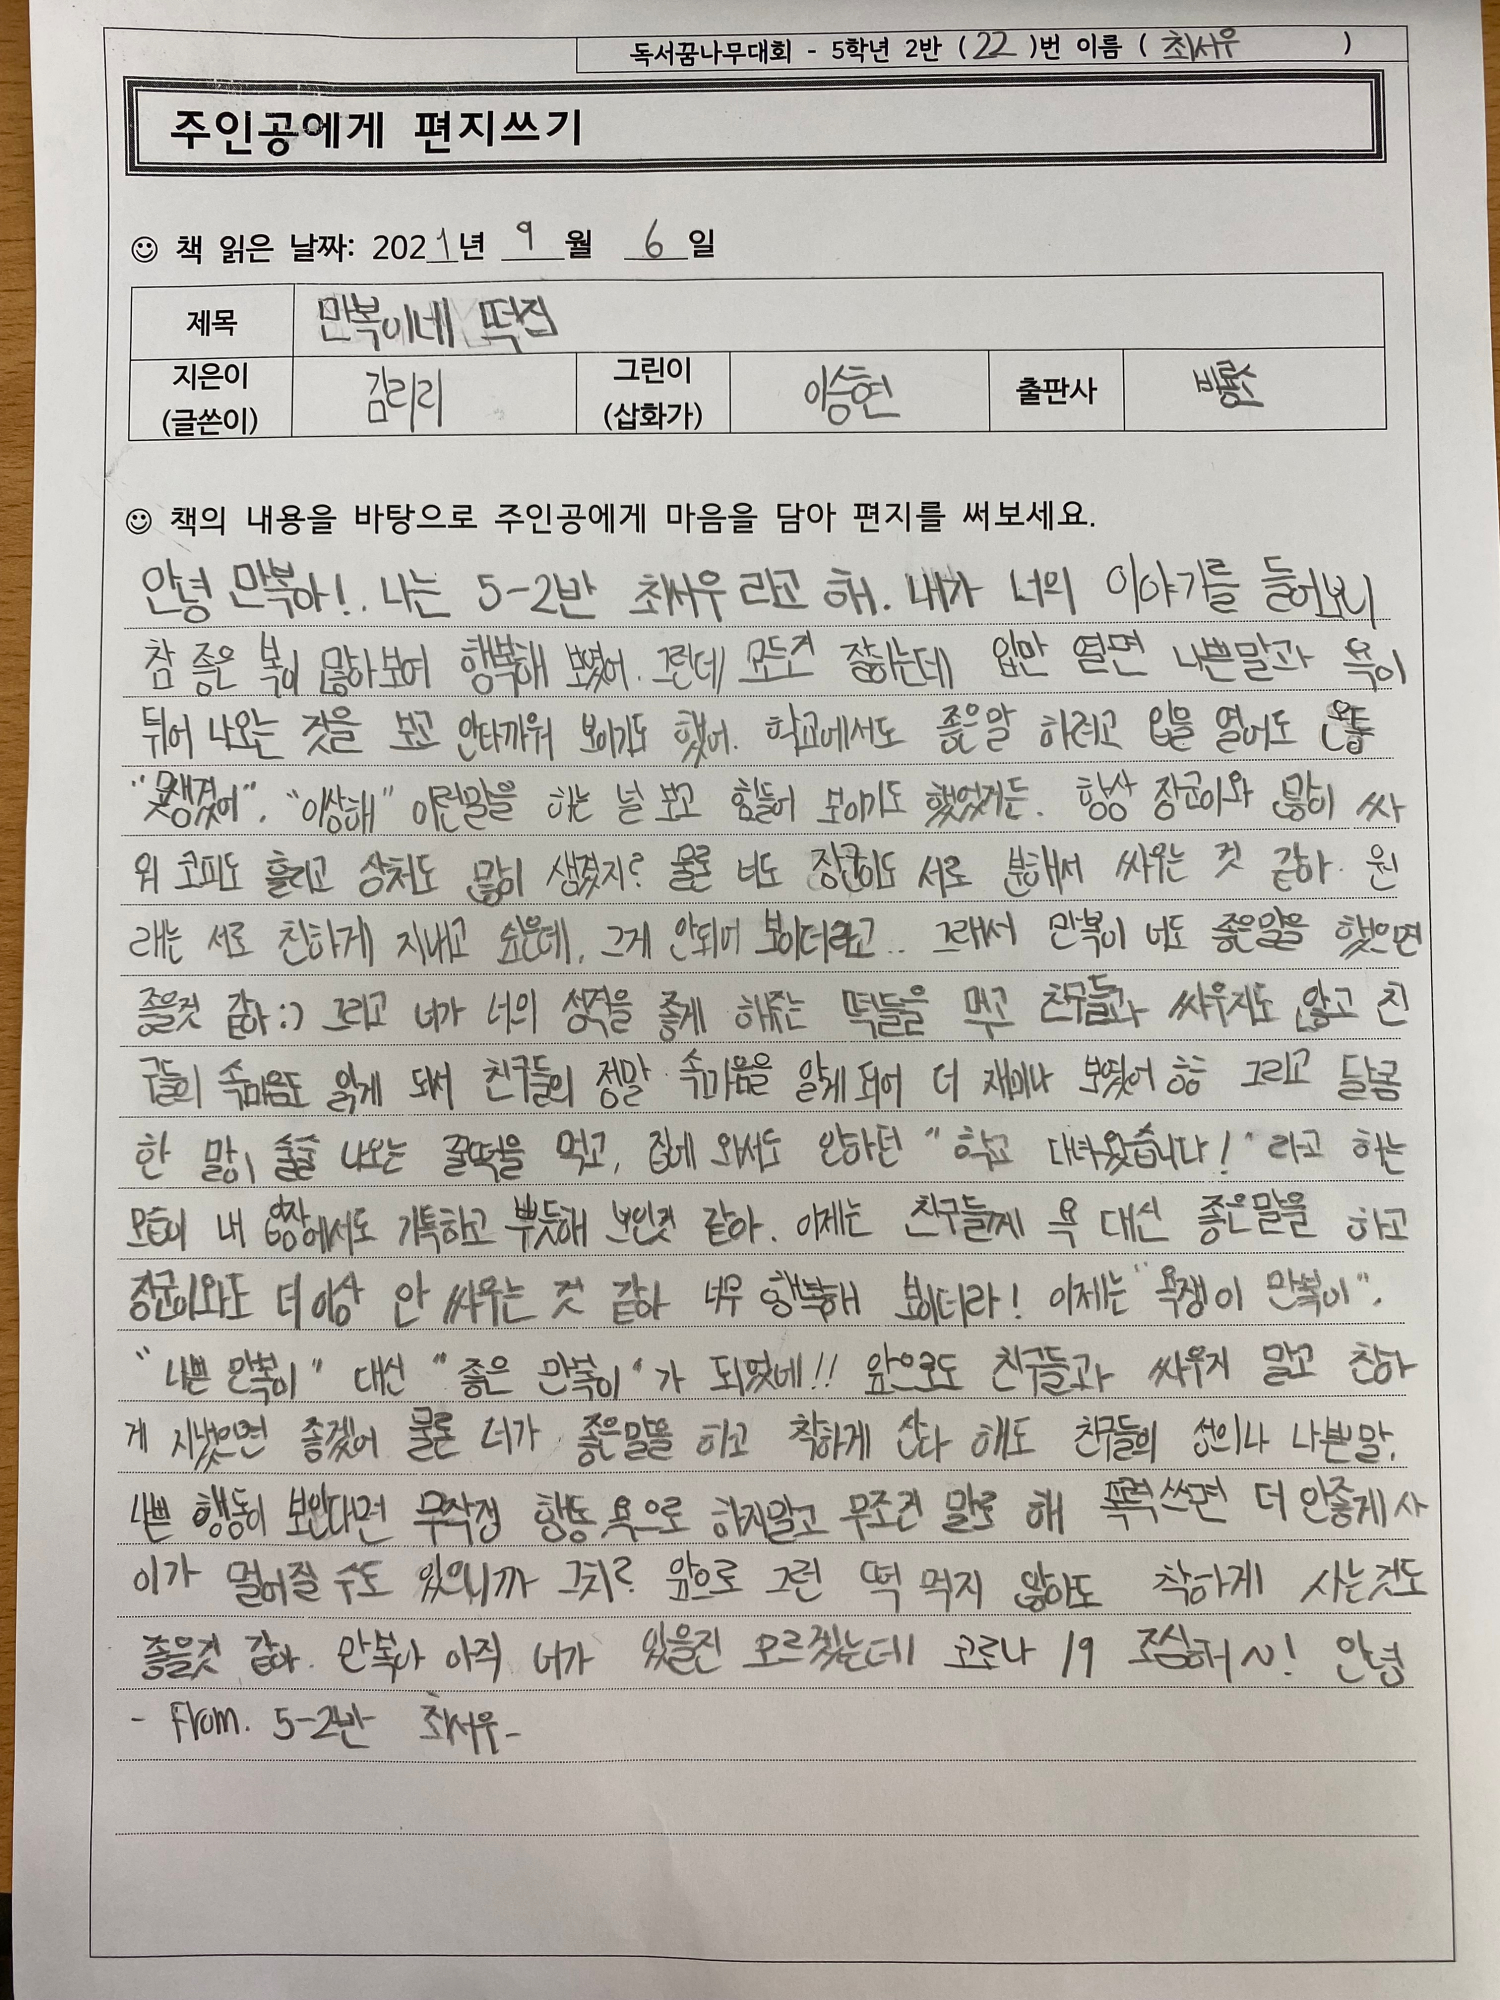 독서꿈나무대회 - 5학년 2반 ( 22 )번 이름 ( 최서우 )
주인공에게 편지쓰기
☺ 책 읽은 날짜: 2021년 9월 6일
제목 만복이네 떡집
지은이 (글쓴이) 김리리 그린이 (삽화가) 이승현 출판사 비룡소
☺ 책의 내용을 바탕으로 주인공에게 마음을 담아 편지를 써보세요.
안녕 만복아!. 나는 5-2반 최서우 라고 해. 내가 너의 이야기를 들어보니
참 좋은 복이 많아보여 행복해 보였어. 그런데 모든건 잘하는데 입만 열면 나쁜말과 욕이
튀어 나오는 것을 보고 안타까워 보이기도 했어. 학교에서도 좋은말 하려고 입을 열어도 온통
"못생겼어". "이상해" 이런말을 하는 널 보고 힘들어 보이기도 했었거든. 항상 장군이와 많이 싸
워 코피도 흘리고 상처도 많이 생겼지? 물론 너도 장군이도 서로 분해서 싸우는 것 같아. 원
래는 서로 친하게 지내고 싶은데, 그게 안되어 보이더라고.. 그래서 만복이 너도 좋은말을 했으면
좋을것 같아:) 그리고 너가 너의 성격을 좋게 해주는 떡들을 먹고 친구들과 싸우지도 않고 친
구들의 속마음도 읽게 되서 친구들의 정말 속마음을 알게 되어 더 재미나 보였어 ㅎㅎ 그리고 달콤
한 말이 술술 나오는 꿀떡을 먹고, 집에 와서도 안하던 "학교 다녀왔습니다!" 라고 하는
모습이 내 입장에서도 기특하고 뿌듯해 보인것 같아. 이제는 친구들께 욕 대신 좋은말을 하고
장군이와도 더 이상 안 싸우는 것 같아 너무 행복해 보이더라! 이제는 "욕쟁이 만복이".
"나쁜 만복이" 대신 "좋은 만복이"가 되었네!! 앞으로도 친구들과 싸우지 말고 친하
게 지냈으면 좋겠어 물론 너가 좋은말을 하고 착하게 산다 해도 친구들의 나쁜말,
나쁜 행동이 보인다면 무작정 행동 욕으로 하지말고 무조건 말로 해 폭력쓰면 더 안좋게 사
이가 멀어질 수도 있으니까 그치? 앞으로 그런 떡 먹지 않아도 착하게 사는것도
좋을것 같아. 만복아 아직 너가 있을진 모르겠는데 코로나 19 조심해~! 안녕
- From. 5-2반 최서우-